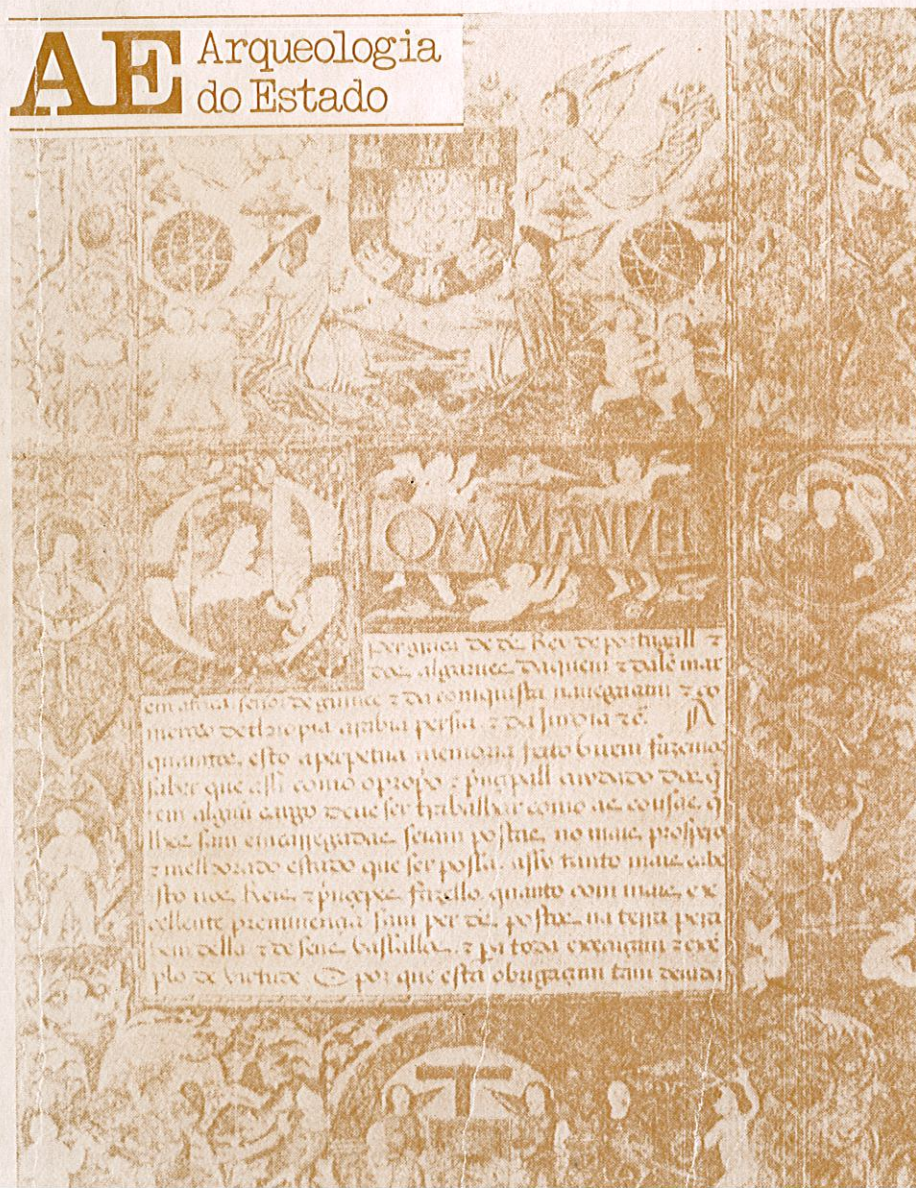 AE Arqueologia
do Estado
OM MANVEL
per graça de ds Rey de portugall z
dos algarues daquem z dalē mar
em africa señor de guinee z da comquista nauegaçam z co
mercio dethiopia arabia persia z da Jmdia zc. A
quantos esto aperpetua memoria feito birem fazemos
saber que assi como o propio z prīcipall cuydado dos q̄
tem algūu cargo deue ser trabalhar como as cousas q̄
lhes sam emcarregadas seiam postas no mais prospero
z melhorado estado que ser possa assy tanto mais cabe
isto nos Reis z prīcepes fazello quanto com mais ex
cellente preminencia sam per ds postos na terra pera
bem della z de seus bassallos z pa toda exe z exē
plo de birtude E por que esta obrigaçam tam deuida